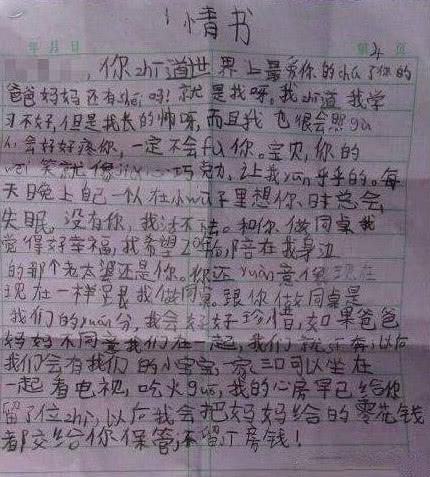 情书
年 月 日 第4页
,你zhī道世界上最爱你的chú了你的
爸爸妈妈还有shéi吗!就是我呀。我zhī道我学
习不好,但是我长的帅呀,而且我也很会照gù
人会好好疼你,一定不会fù你。宝贝,你的
wēi笑就像心巧克力,让我yūn乎乎的。每
天晚上自己一个人在小wū子里想你时总会
失眠,没有你,我活不。和你做同桌我
觉得好幸福,我希望20年陪在我身边
的那个老太婆还是你。你还yuàn意像现在
现在一样跟我做同桌。跟你做同桌是
我们的yuán分,我会好好珍惜,如果爸爸
妈妈不同意我们在一起,我们就奔,以后
我们会有我们的小宝宝,一家三口可以坐在
一起看电视,吃火guō,我的心房早已给你
留了位zhì,以后我会把妈妈给的零花钱
都交给你保管,不留房钱!